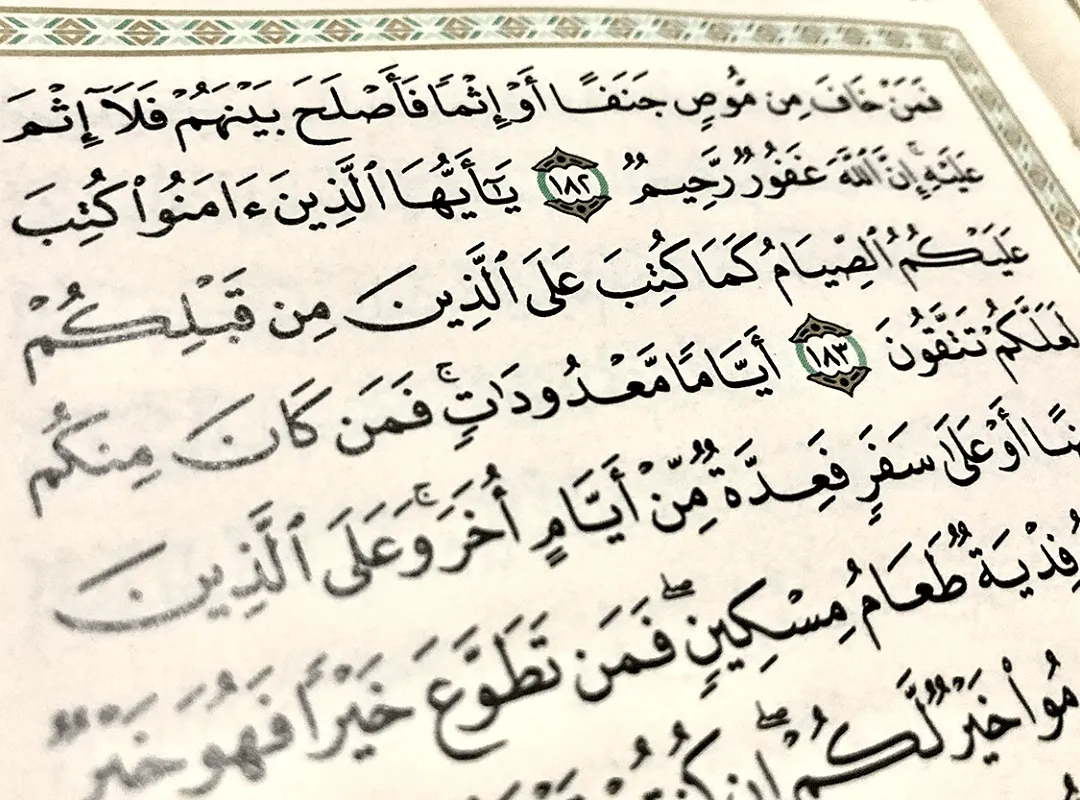 فَمَنْ خَافَ مِن مُّوصٍ جَنَفًا أَوْ إِثْمًا فَأَصْلَحَ بَيْنَهُمْ فَلَآ إِثْمَ
عَلَيْهِ ۚ إِنَّ ٱللَّهَ غَفُورٌ رَّحِيمٌ ١٨٢ يَـٰٓأَيُّهَا ٱلَّذِينَ ءَامَنُوا۟ كُتِبَ
عَلَيْكُمُ ٱلصِّيَامُ كَمَا كُتِبَ عَلَى ٱلَّذِينَ مِن قَبْلِكُمْ
لَعَلَّكُمْ تَتَّقُونَ ١٨٣ أَيَّامًا مَّعْدُودَٰتٍ ۚ فَمَن كَانَ مِنكُم
أَوْ عَلَىٰ سَفَرٍ فَعِدَّةٌ مِّنْ أَيَّامٍ أُخَرَ ۚ وَعَلَى ٱلَّذِينَ
فِدْيَةٌ طَعَامُ مِسْكِينٍ ۖ فَمَن تَطَوَّعَ خَيْرًا فَهُوَ خَيْرٌ
خَيْرٌ لَّكُمْ ۖ إِن